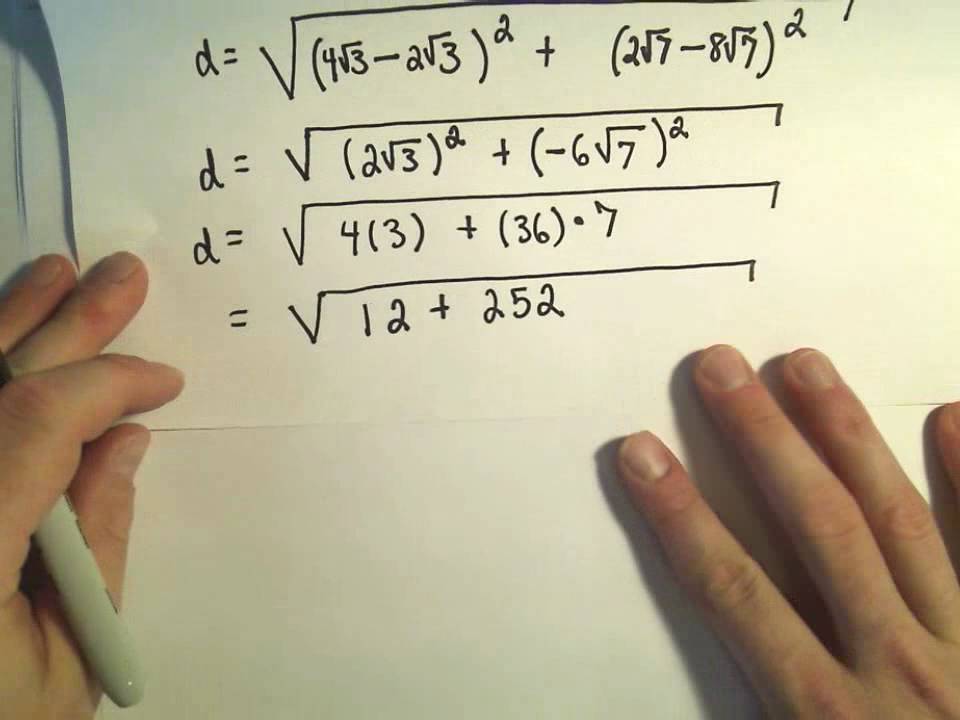 d = √(4√3 − 2√3)² + (2√7 − 8√7)²
d = √(2√3)² + (−6√7)²
d = √4(3) + (36)·7
= √12 + 252